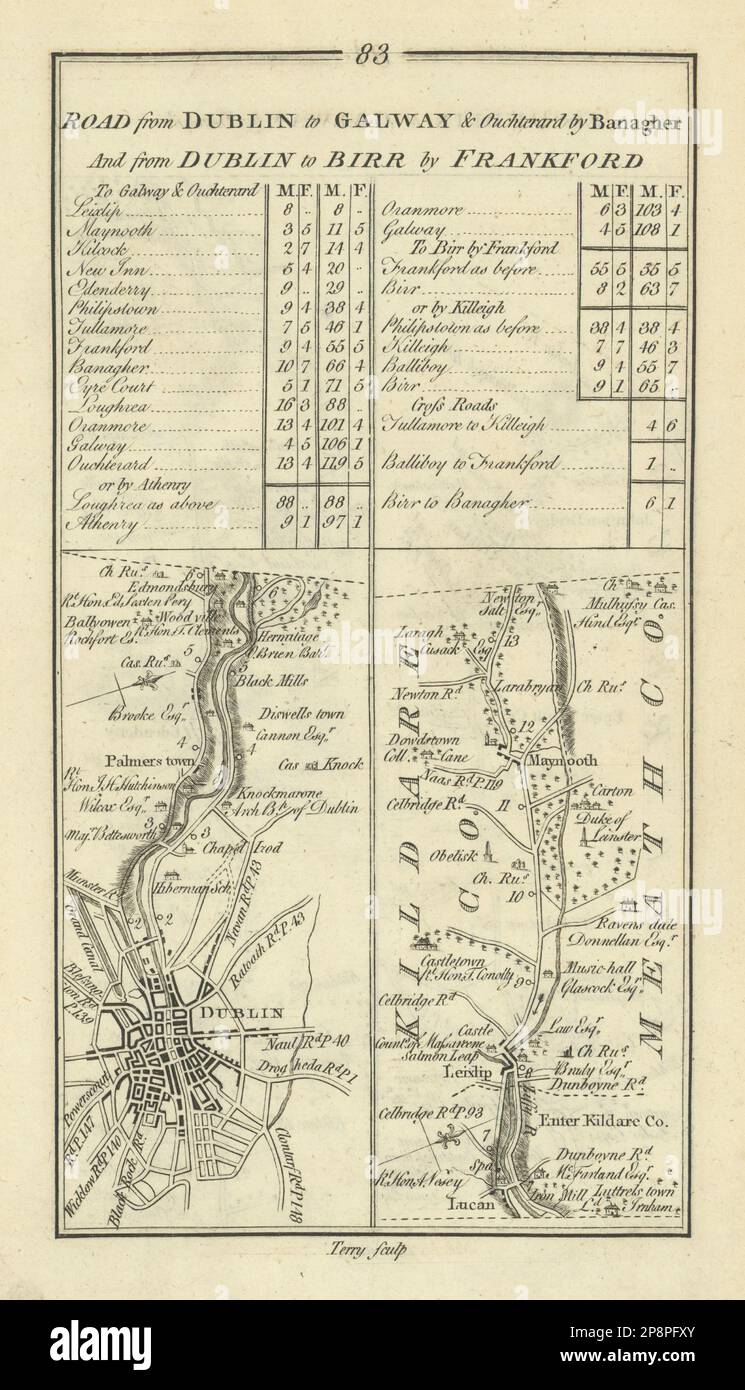 83
ROAD from DUBLIN to GALWAY & Ouchterard by Banagher
And from DUBLIN to BIRR by FRANKFORD
To Galway & Ouchterard M. F. M. F.
Leixlip 8 .. 8 ..
Maynooth 3 5 11 5
Kilcock 2 7 14 4
New Inn 5 4 20 ..
Edenderry 9 .. 29 ..
Philipstown 9 4 38 4
Tullamore 7 5 46 1
Frankford 9 4 55 5
Banagher 10 7 66 4
Eyre Court 5 1 71 5
Loughrea 16 3 88 ..
Oranmore 13 4 101 4
Galway 4 5 106 1
Ouchterard 13 4 119 5
or by Athenry
Loughrea as above 88 .. 88 ..
Athenry 9 1 97 1
M. F. M. F.
Oranmore 6 3 103 4
Galway 4 5 108 1
To Birr by Frankford
Frankford as before 55 5 55 5
Birr 8 2 63 7
or by Killeigh
Philipstown as before 38 4 38 4
Killeigh 7 7 46 3
Balliboy 9 4 55 7
Birr 9 1 65 ..
Cross Roads
Tullamore to Killeigh 4 6
Balliboy to Frankford 1 ..
Birr to Banagher 6 1
Ch Rus. 6
Edmondsbury 6
Rt. Hon. Ed. Sexten Pery
Ballyowen Woodvill
Rochfort Esq. Rt. Hon. T. Clements
Hermitage
O.Brien Bart.
Cas. Rus. 5
5
Black Mills
Brooke Esqr.
Diswells town
Cannon Esqr.
4
4
Palmers town
Cas Knock
Rt.
Hon J. H. Hutchinson
Knockmarone
Wilcox Esqr.
Arch Bp. of Dublin
3
Majr. Bettesworth 3
Chapel Izod
Hibernian Sch.
Munster Rd.
2 2
Grand Canal
Navan Rd P.43
Ratoath Rd. P.43
Blessing
ton Rd
P.139
DUBLIN
Naul Rd P 40
Drogheda Rd P 1
Powerscourt
Rd P.147
Wicklow Rd P 140
Black Rock Rd
Clontarf Rd P 148
Newtop
Salt Esqr.
Ch
Mulhussy Cas.
Hind Esqr.
Laragh
Cusack Esq
13
Newton Rd
Larabryan
Ch Rus.
12
Dowdstown
Coll. Cane
Maynooth
Naas Rd P. 119
Celbridge Rd
11
Carton
Duke of
Leinster
Obelisk
Ch. Rus.
10
KILDARE CO.
MEATH CO.
Ravens dale
Donnellan Esqr.
Castletown
Rt. Hon. T. Conolly
9
Music-hall
Glascock Esqr.
Celbridge Rd
Castle
Count of Massareene
Salmon Leap
Law Esqr.
Ch Rus.
Leixlip
8
Brady Esqr.
Dunboyne Rd.
Liffy R.
Celbridge Rd P. 93
Enter Kildare Co.
7
Spa
Dunboyne Rd.
McFarland Esqr.
Rt. Hon A. Vesey
Iron Mill
Luttrels town
Lucan
Ld. Irnham
Terry sculp
alamy
alamy
Image ID: 2P8PFXY
www.alamy.com